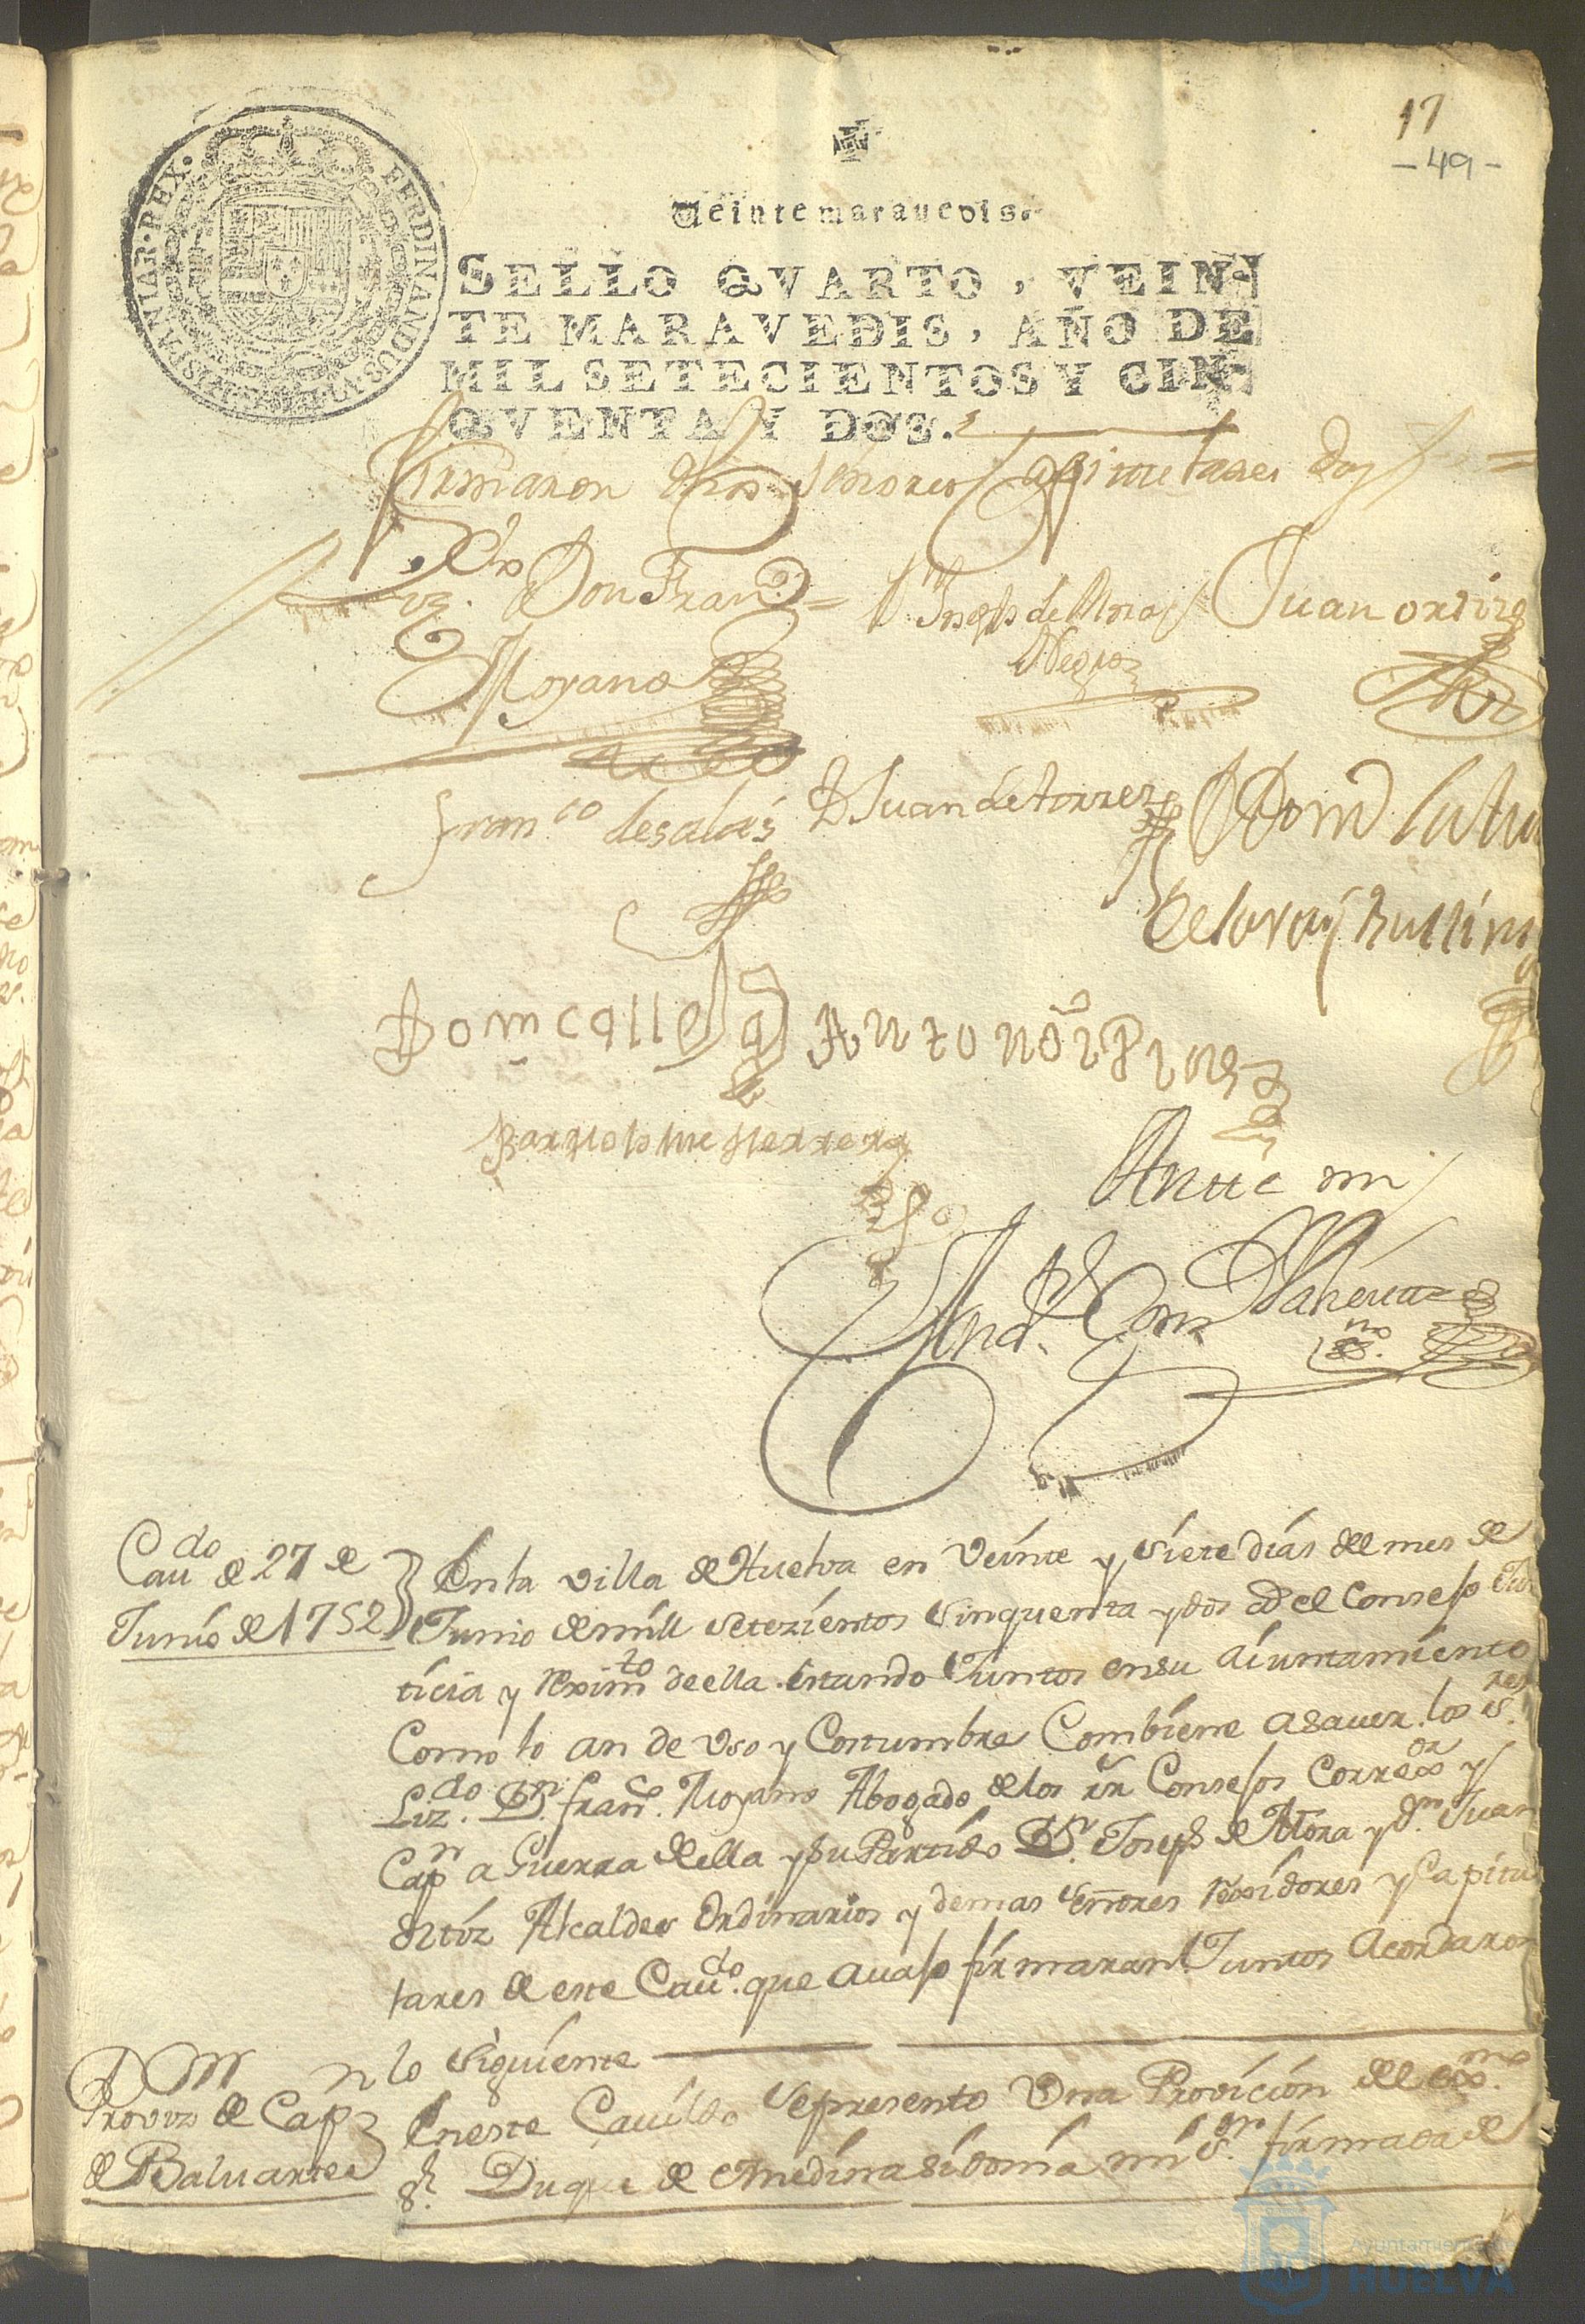 17
- 49 -
HISPANIAR·REX· FERDINANDUS·VI·D·G·
Veinte maravedis.
SELLO QVARTO, VEIN-
TE MARAVEDIS, AÑO DE
MIL SETECIENTOS Y CIN-
QVENTA Y DOS.
firmaron dhos Señores Capitulares Doy fee =
Lizdo Don Franco = Dn Joseph de Mora Juan ortiz
Moyano Negro
franco de salas D Juan de torres
Dom calle Anton
Bartolome Herrera
Ante mi
Cavdo de 27 de
Junio de 1752
En la villa de Huelva en Veinte y Siete dias del mes de
Junio de mill setezientos Sinquenta y dos el Consejo Jus
ticia y reximto de ella estando Juntos en su Aiuntamiento
Como lo an de Uso y Costumbre Combiene a saver los Sres
Lizdo Dn franco Moyano Abogado de los rs Consejos Correxor y
Capn a Guerra de ella y su Partido Dn Joseph de Mora y dn Juan
Ortiz Alcaldes Ordinarios y demas Señores rexidores y Capitu
lares de este Cavdo que avajo firmaran Juntos Acordaron
lo Siguiente
Provon de Capn
de Baluartes
En este Cavildo se presento Una Provicion del exmo
sr Duque de Medina sidonia mi sr firmada de
Ayuntamiento de
HUELVA